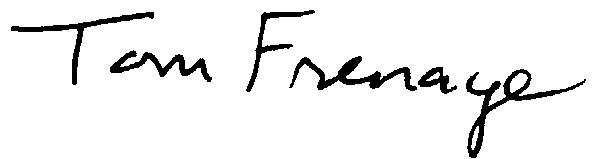 Tom Frenaye